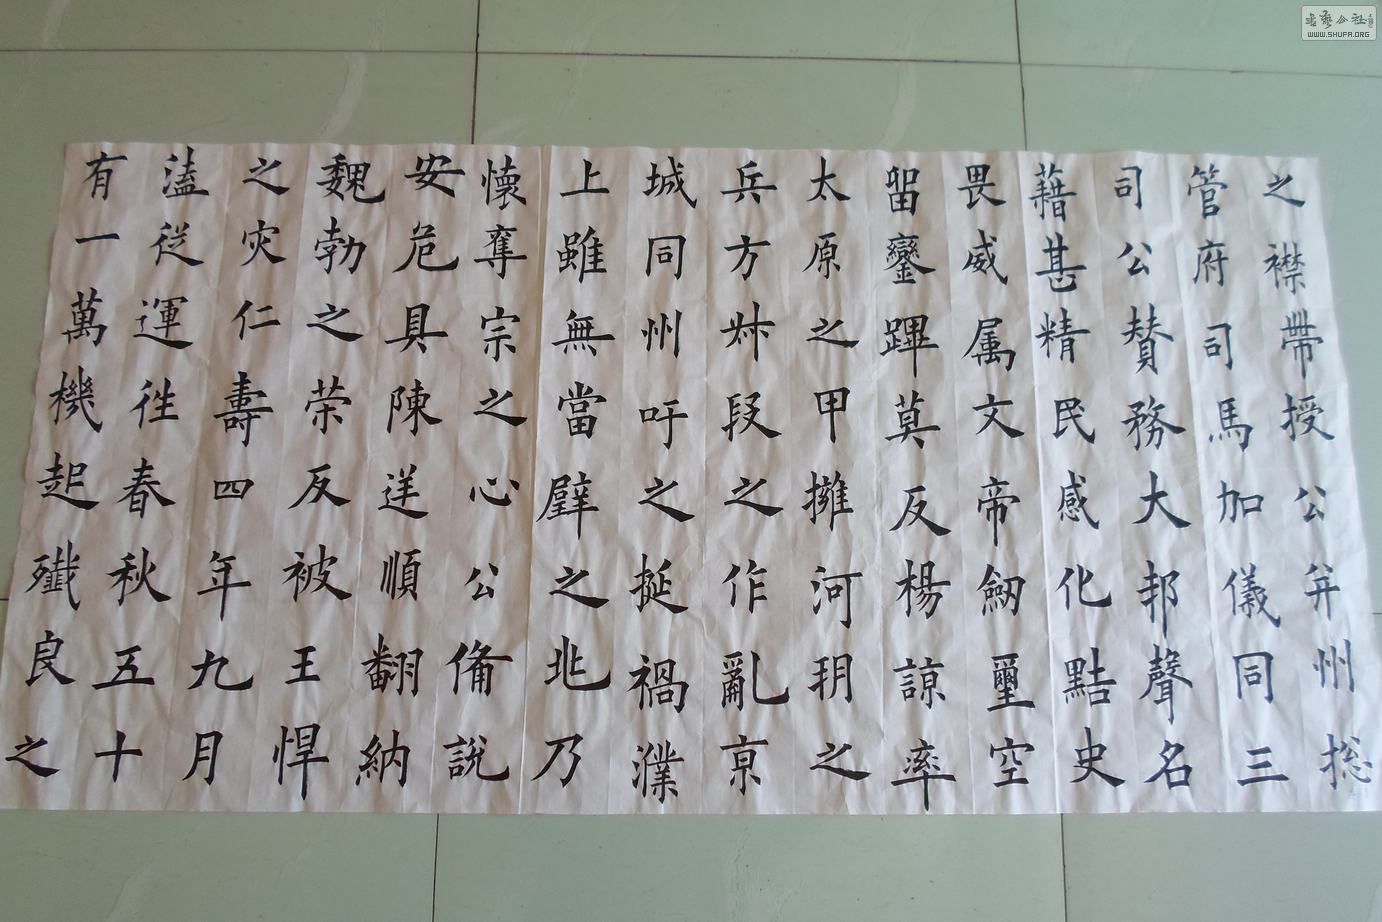 之襟帶授公并州捴
管府司馬加儀同三
司公賛務大邦聲名
藉甚精民感化點史
畏威属文帝劒璽空
留鑾蹕莫反楊諒率
太原之甲擁河朔之
兵方叔段之作亂亰
城同州吁之挻禍濮
上雖無當璧之兆乃
懷奪宗之心公俻說
安危具陳逆順翻納
魏勃之荣反被王悍
之灾仁壽四年九月
溘從運往春秋五十
有一萬機起殲良之
书艺公社
WWW.SHUFA.ORG